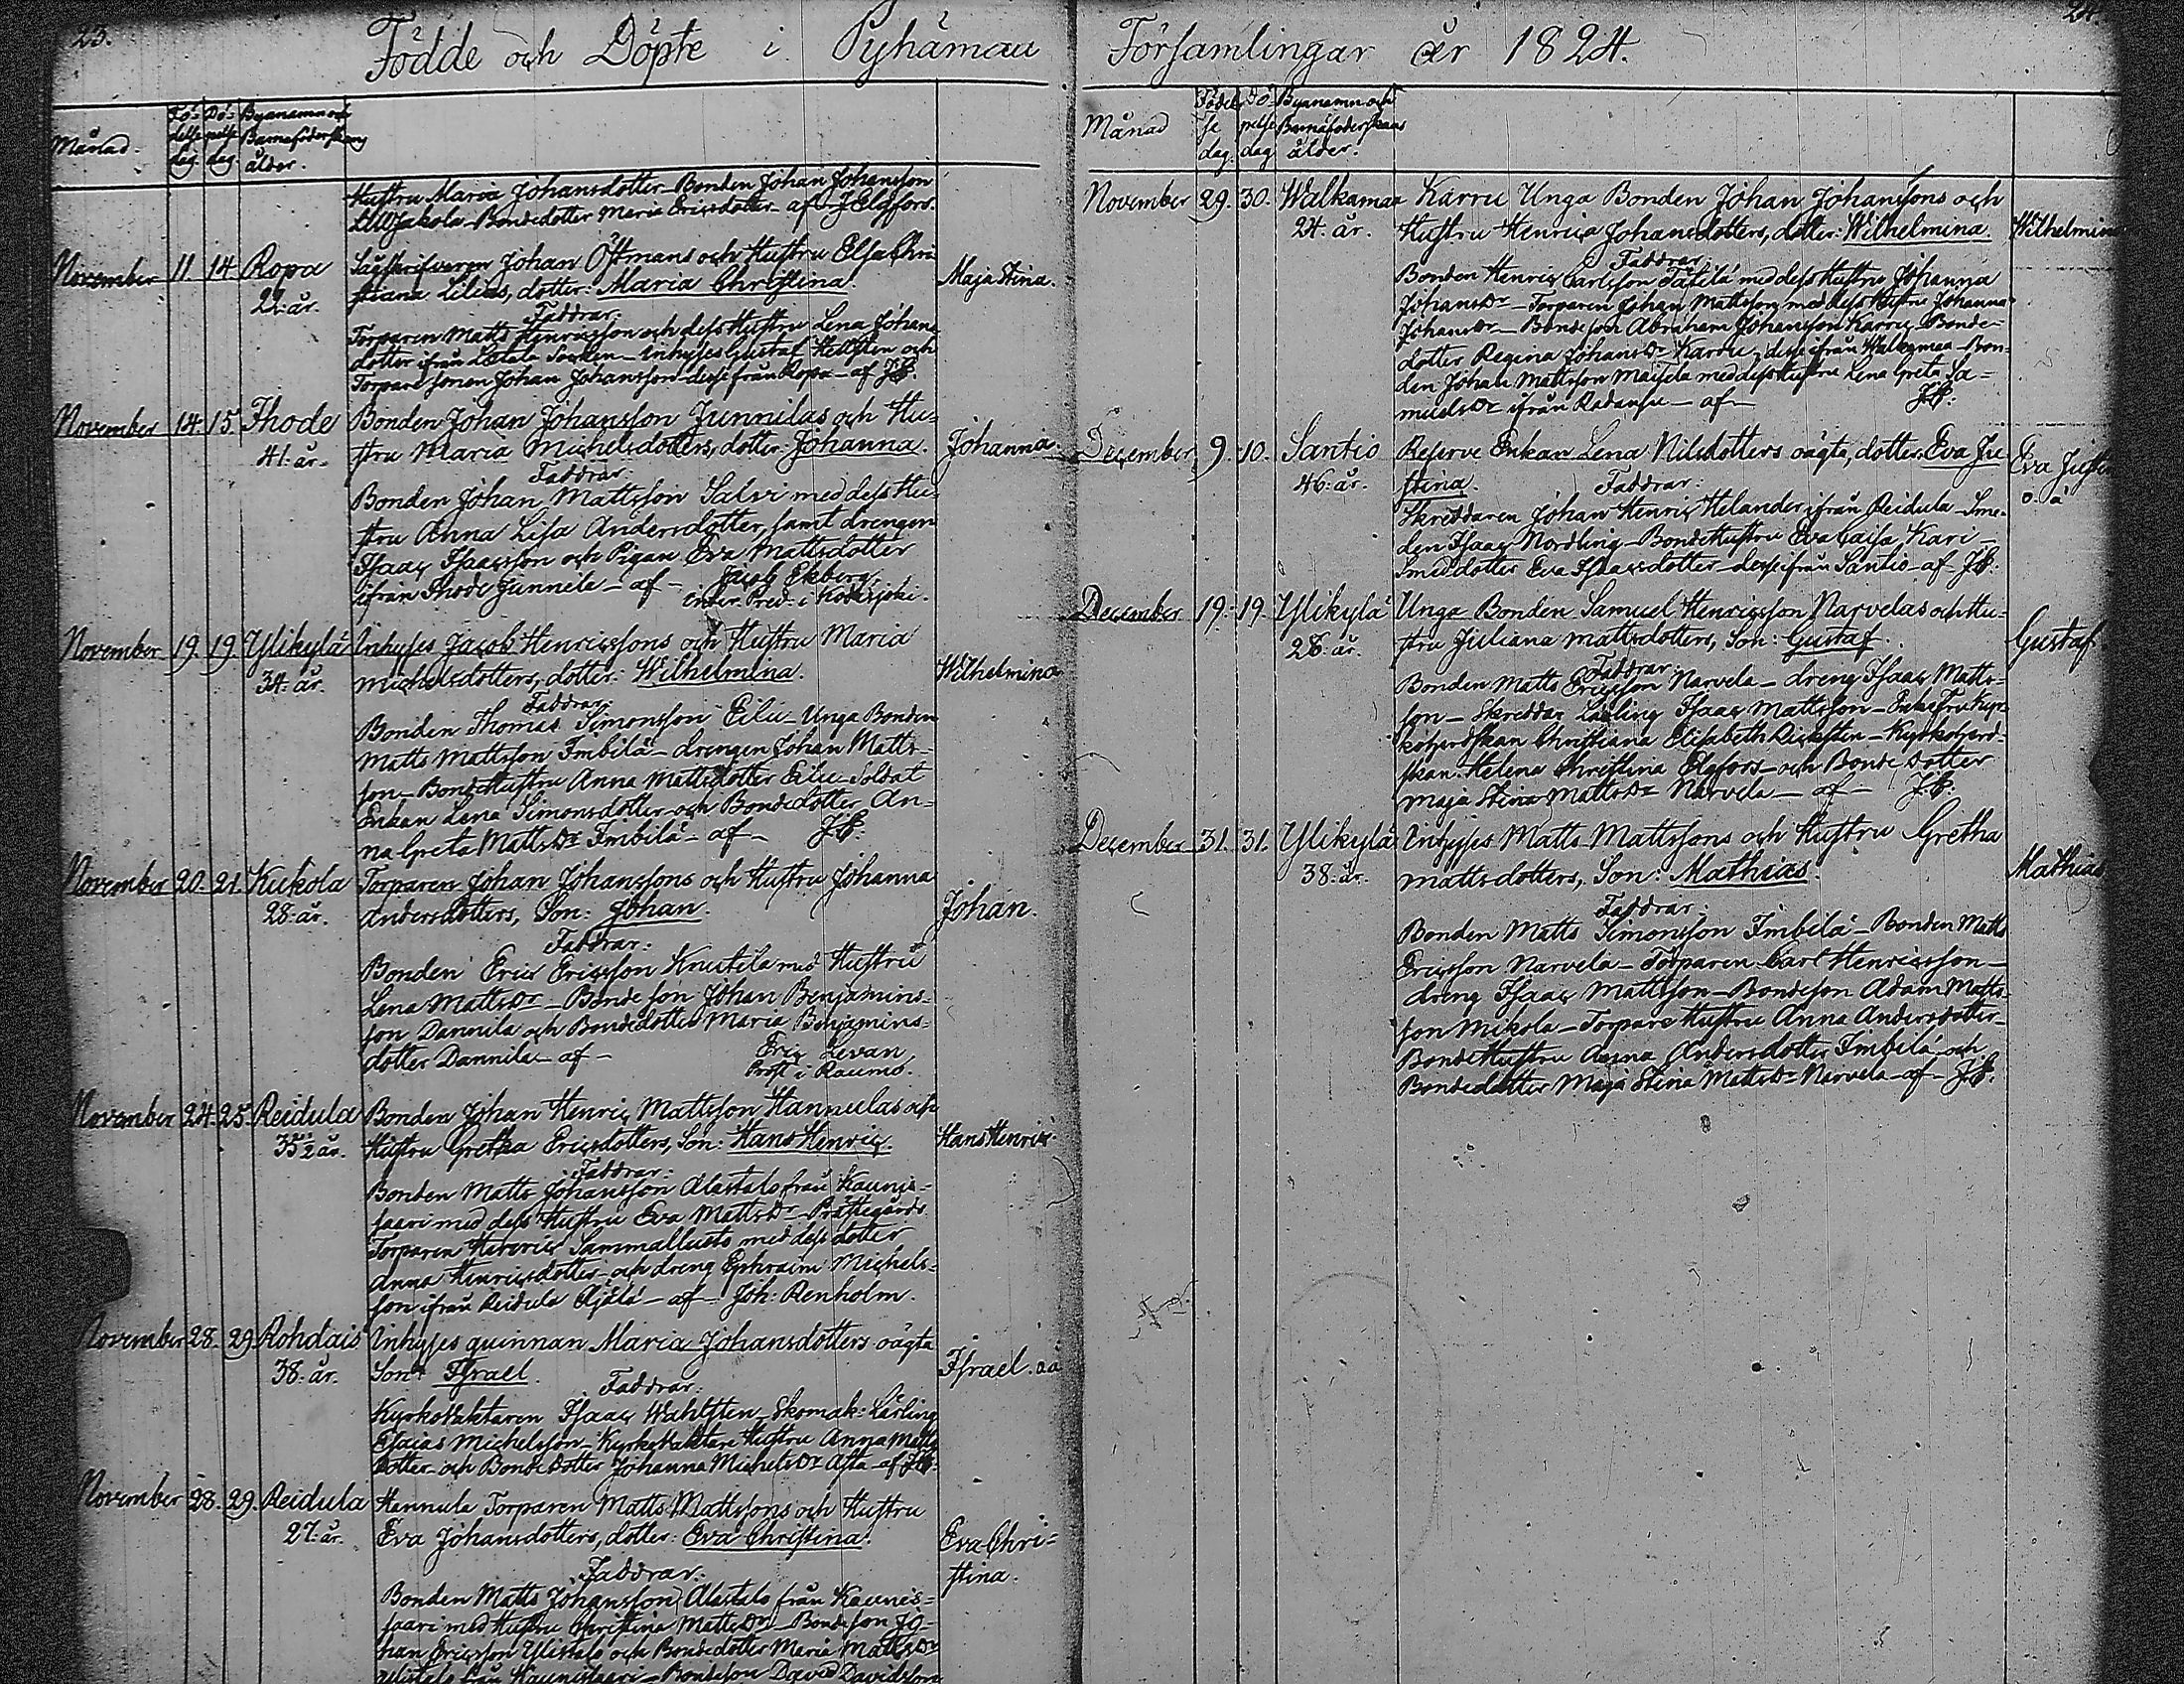 23.
Födde och Döpte i Pyhämaa
Månad.
Fö-
delse
dag
Dö-
pelse
dag
Byanamn och
Barnaföderskans
ålder.
Hustru Maria Johansdotter - Bonden Johan Johansson
Bondedotter Maria Ericsdotter - af J Elgfors.
November 11. 14. Ropa
22. år.
Johan Östmans och Hustru Elsa Chri
stiana Lilius, dotter: Maria Christina.
Maja Stina.
Faddrar:
Torparen Matts Henricsson och dess Hustru Lena Johans
dotter ifrån Letala Socken - Inhyses Gustaf Hellsten och
Torpare sonen Johan Johansson desse från Ropa - af JE.
November 14. 15. Ihode
41. år.
Bonden Johan Johansson Junnilas och Hu-
stru Maria Michelsdotters, dotter: Johanna.
Johanna
Faddrar:
Bonden Johan Mattsson Salvi med dess Hu-
stru Anna Lisa Andersdotter, samt drengen
Isaac Isaacsson och Pigan Eva Mattsdotter
ifrån Ihode Junnila - af - Jacob Ekberg,
Pred. i Kodisjoki.
November 19. 19. Ylikylä
34. år.
Inhyses Jacob Henricssons och Hustru Maria
Michelsdotters, dotter: Wilhelmina.
Wilhelmina
Faddrar:
Bonden Thomas Simonsson Eilu - Unga Bonden
Matts Mattsson Imbilä - drengen Johan Matts-
son - BondeHustru Anna Mattsdotter Eilu - Soldat
Enkan Lena Simonsdotter och Bondedotter An-
na Greta Mattsdr Imbilä - af - JE.
November 20. 21. Kukola
28. år.
Torparen Johan Johanssons och Hustru Johanna
Andersdotters, Son: Johan.
Johan.
Faddrar:
Bonden Eric Ericsson Knutila med Hustru
Lena Mattsdr - Bondeson Johan Benjamins-
son Dannila och Bondedotter Maria Benjamins-
dotter Dannila - af - Eric Levan,
Prost i Raumo.
November 24. 25. Reidula
35 1/2 år.
Bonden Johan Henric Mattsson Hannulas och
Hustru Gretha Ericsdotters, Son: Hans Henric.
Hans Henric.
Faddrar:
Bonden Matts Johansson Alastalo från Kaunis-
saari med dess Hustru Eva Mattsdr - Prästegårds
Torparen Henric Sammallusto med dess dotter
Anna Henricsdotter och dreng Ephraim Michels-
son ifrån Reidula Äjälä - af - Joh: Renholm.
November 28. 29. Rohdais
38. år.
Inhyses quinnan Maria Johansdotters oägta
Son: Israel.
Israel. oä
Faddrar:
Kyrkovaktaren Isaac Wahlsten - Skomak: Lärling
Esaias Michelsson - Kyrkovaktare Hustru Anna Matts
dotter och Bondedotter Johanna Michelsdr - af JE.
November 28. 29. Reidula
27. år.
Hannula Torparen Matts Mattssons och Hustru
Eva Johansdotters, dotter: Eva Christina.
Eva Chri-
stina.
Faddrar:
Bonden Matts Johansson Alastalo från Kaunis-
saari med Hustru Christina Mattsdr - Bondeson Jo-
han Ericsson Ylistalo och Bondedotter Maria Mattsdr
Ylistalo från Kaunissaari - Bondeson David Davidsson
24.
Församlingar år 1824.
Månad
Födel
se
dag.
Dö-
pelse
dag
Byanamn och
Barnaföderskans
ålder.
November 29. 30. Walkamaa
24. år.
Karru Unga Bonden Johan Johanssons och
Hustru Henrica Johansdotters, dotter: Wilhelmina.
Wilhelmina
Faddrar:
Bonden Henric Carlsson Tätilä med dess Hustru Johanna
Johansdr - Torparen Johan Mattsson med dess Hustru Johanna
Johansdr - Bondeson Abraham Johansson Karru - Bonde-
dotter Regina Johansdr Karru, desse ifrån Walkamaa - Bon-
den Johan Mattsson Maisela med dess Hustru Lena Greta Sa-
muelsdr ifrån Radansu - af - JE.
December 9. 10. Santio
46. år.
Reserve Enkan Lena Nilsdotters oägta, dotter: Eva Ju
stina.
Eva Justi
o. ä
Faddrar:
Skreddaren Johan Henric Helander ifrån Reidula - Sme-
den Isaac Nordling - BondeHustru Eva Caisa Kari -
Smeddotter Eva Isaacsdotter - desse ifrån Santio - af JE.
December 19. 19. Ylikylä
28. år.
Unga Bonden Samuel Henricsson Narvelas och Hu-
stru Juliana Mattsdotters, Son: Gustaf.
Gustaf.
Faddrar:
Bonden Matts Ericsson Narvela - dreng Isaac Matts-
son - Skreddar Lärling Isaac Mattsson - Enkefru Kyr-
koherdskan Christiana Elisabeth - Kyrkoherd-
skan Helena Christina Elgfors - och Bonde dotter
Maja Stina Mattsdr Narvela - af - JE.
December 31. 31. Ylikylä
38. år.
Inhyses Matts Mattssons och Hustru Gretha
Mattsdotters, Son: Mathias.
Mathias
Faddrar:
Bonden Matts Simonsson Imbilä - Bonden Matts
Ericsson Narvela - Torparen Carl Henricsson -
dreng Isaac Mattsson - Bondeson Adam Matts-
son Mikola - Torpare Hustru Anna Andersdotter -
BondeHustru Anna Andersdotter Imbilä och
Bondedotter Maja Stina Mattsdr Narvela - af - JE.